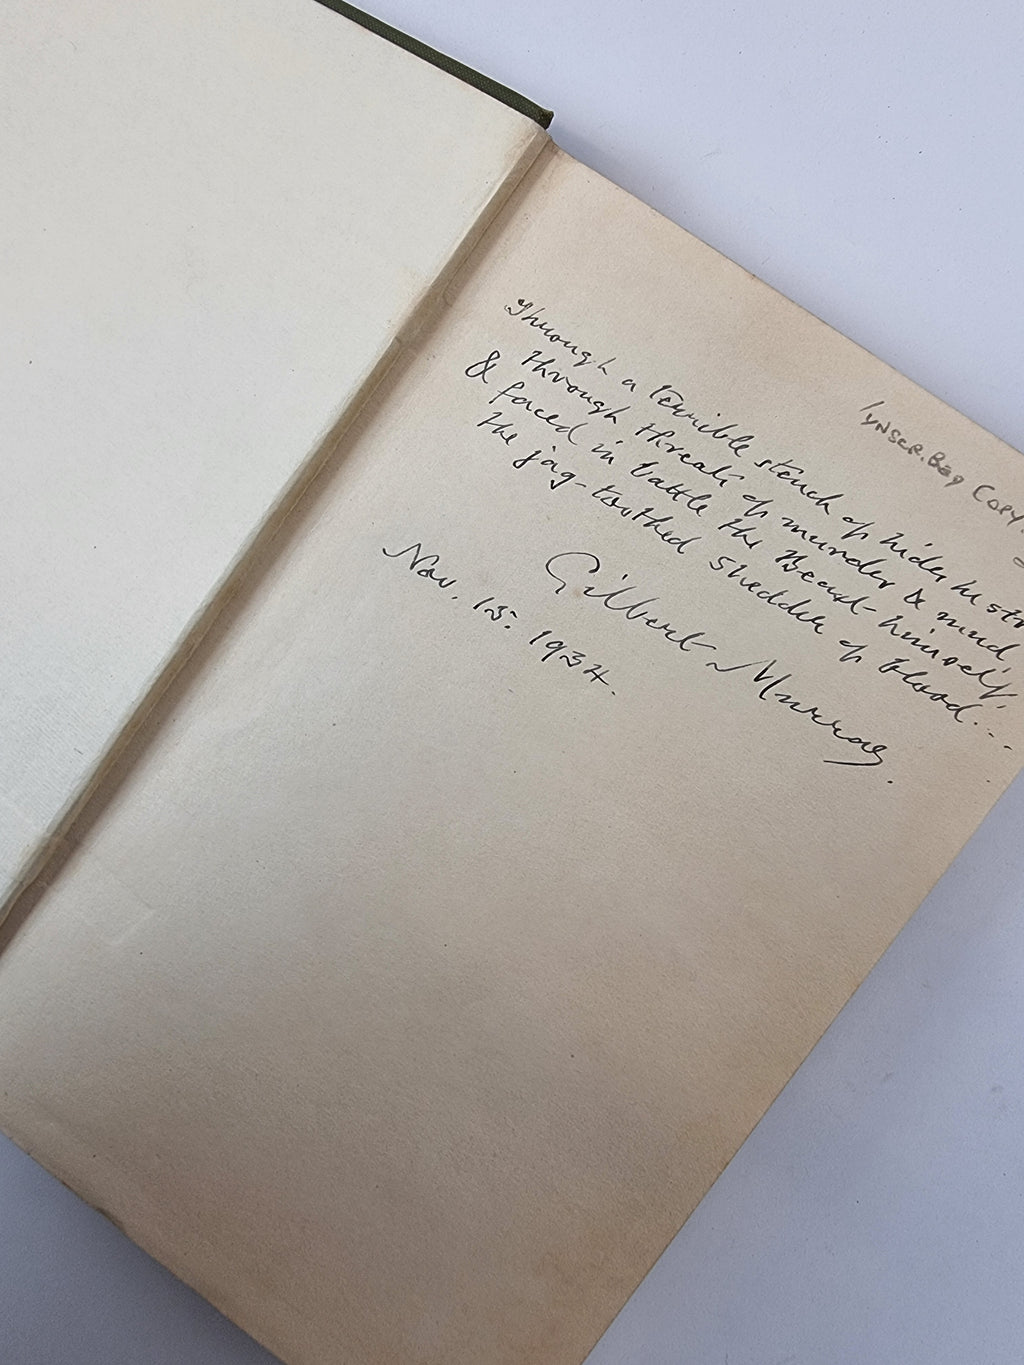 Through a terrible stench of hides he str
through threats of murder & mud,
& faced in battle the Beast himself,
the jag-toothed shedder of blood....
Gilbert Murray.
Nov. 15. 1934.
Copy